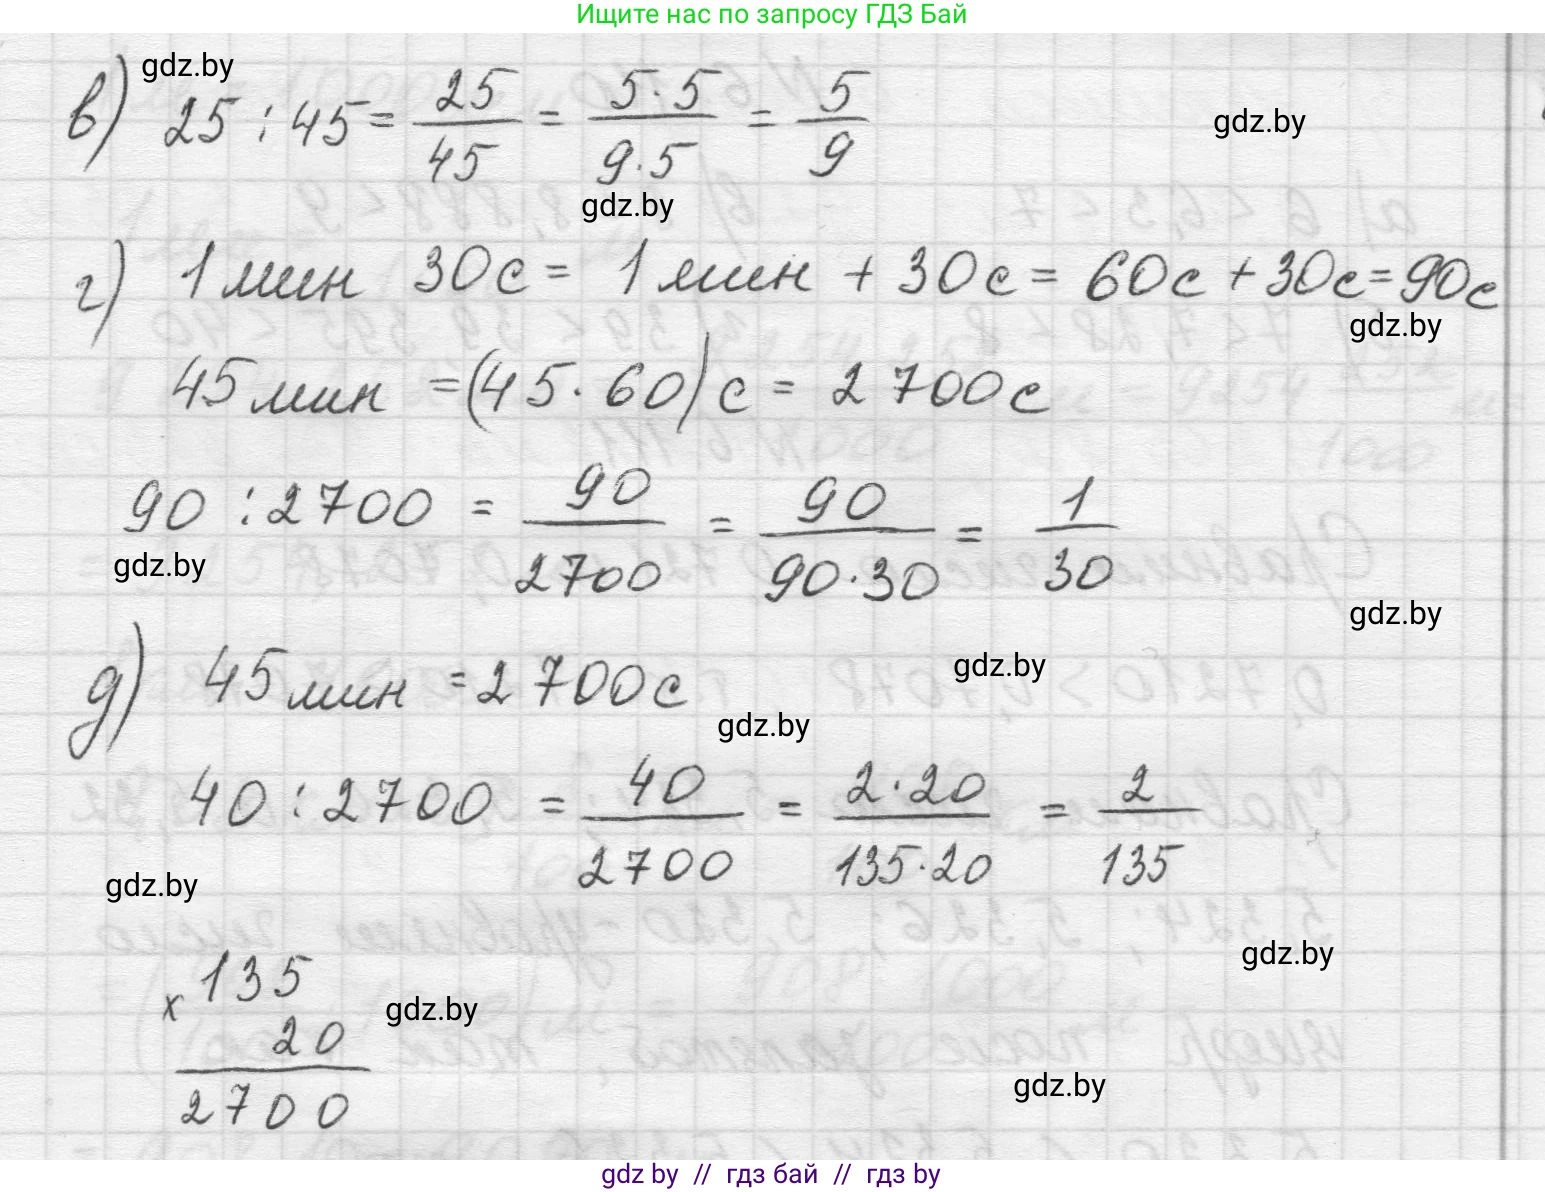 Ищите нас по запросу ГДЗ Бай
gdz.by
в) 25 : 45 = 25/45 = 5·5/9·5 = 5/9
gdz.by
gdz.by
г) 1 мин 30 с = 1 мин + 30 с = 60 с + 30 с = 90 с
gdz.by
45 мин = (45 · 60) с = 2 700 с
90 : 2700 = 90/2700 = 90/90·30 = 1/30
gdz.by
gdz.by
д) 45 мин = 2 700 с
gdz.by
gdz.by
40 : 2700 = 40/2700 = 2·20/135·20 = 2/135
gdz.by
gdz.by
x 135
gdz.by
20
2700
gdz.by
gdz by // гдз бай // гдз by